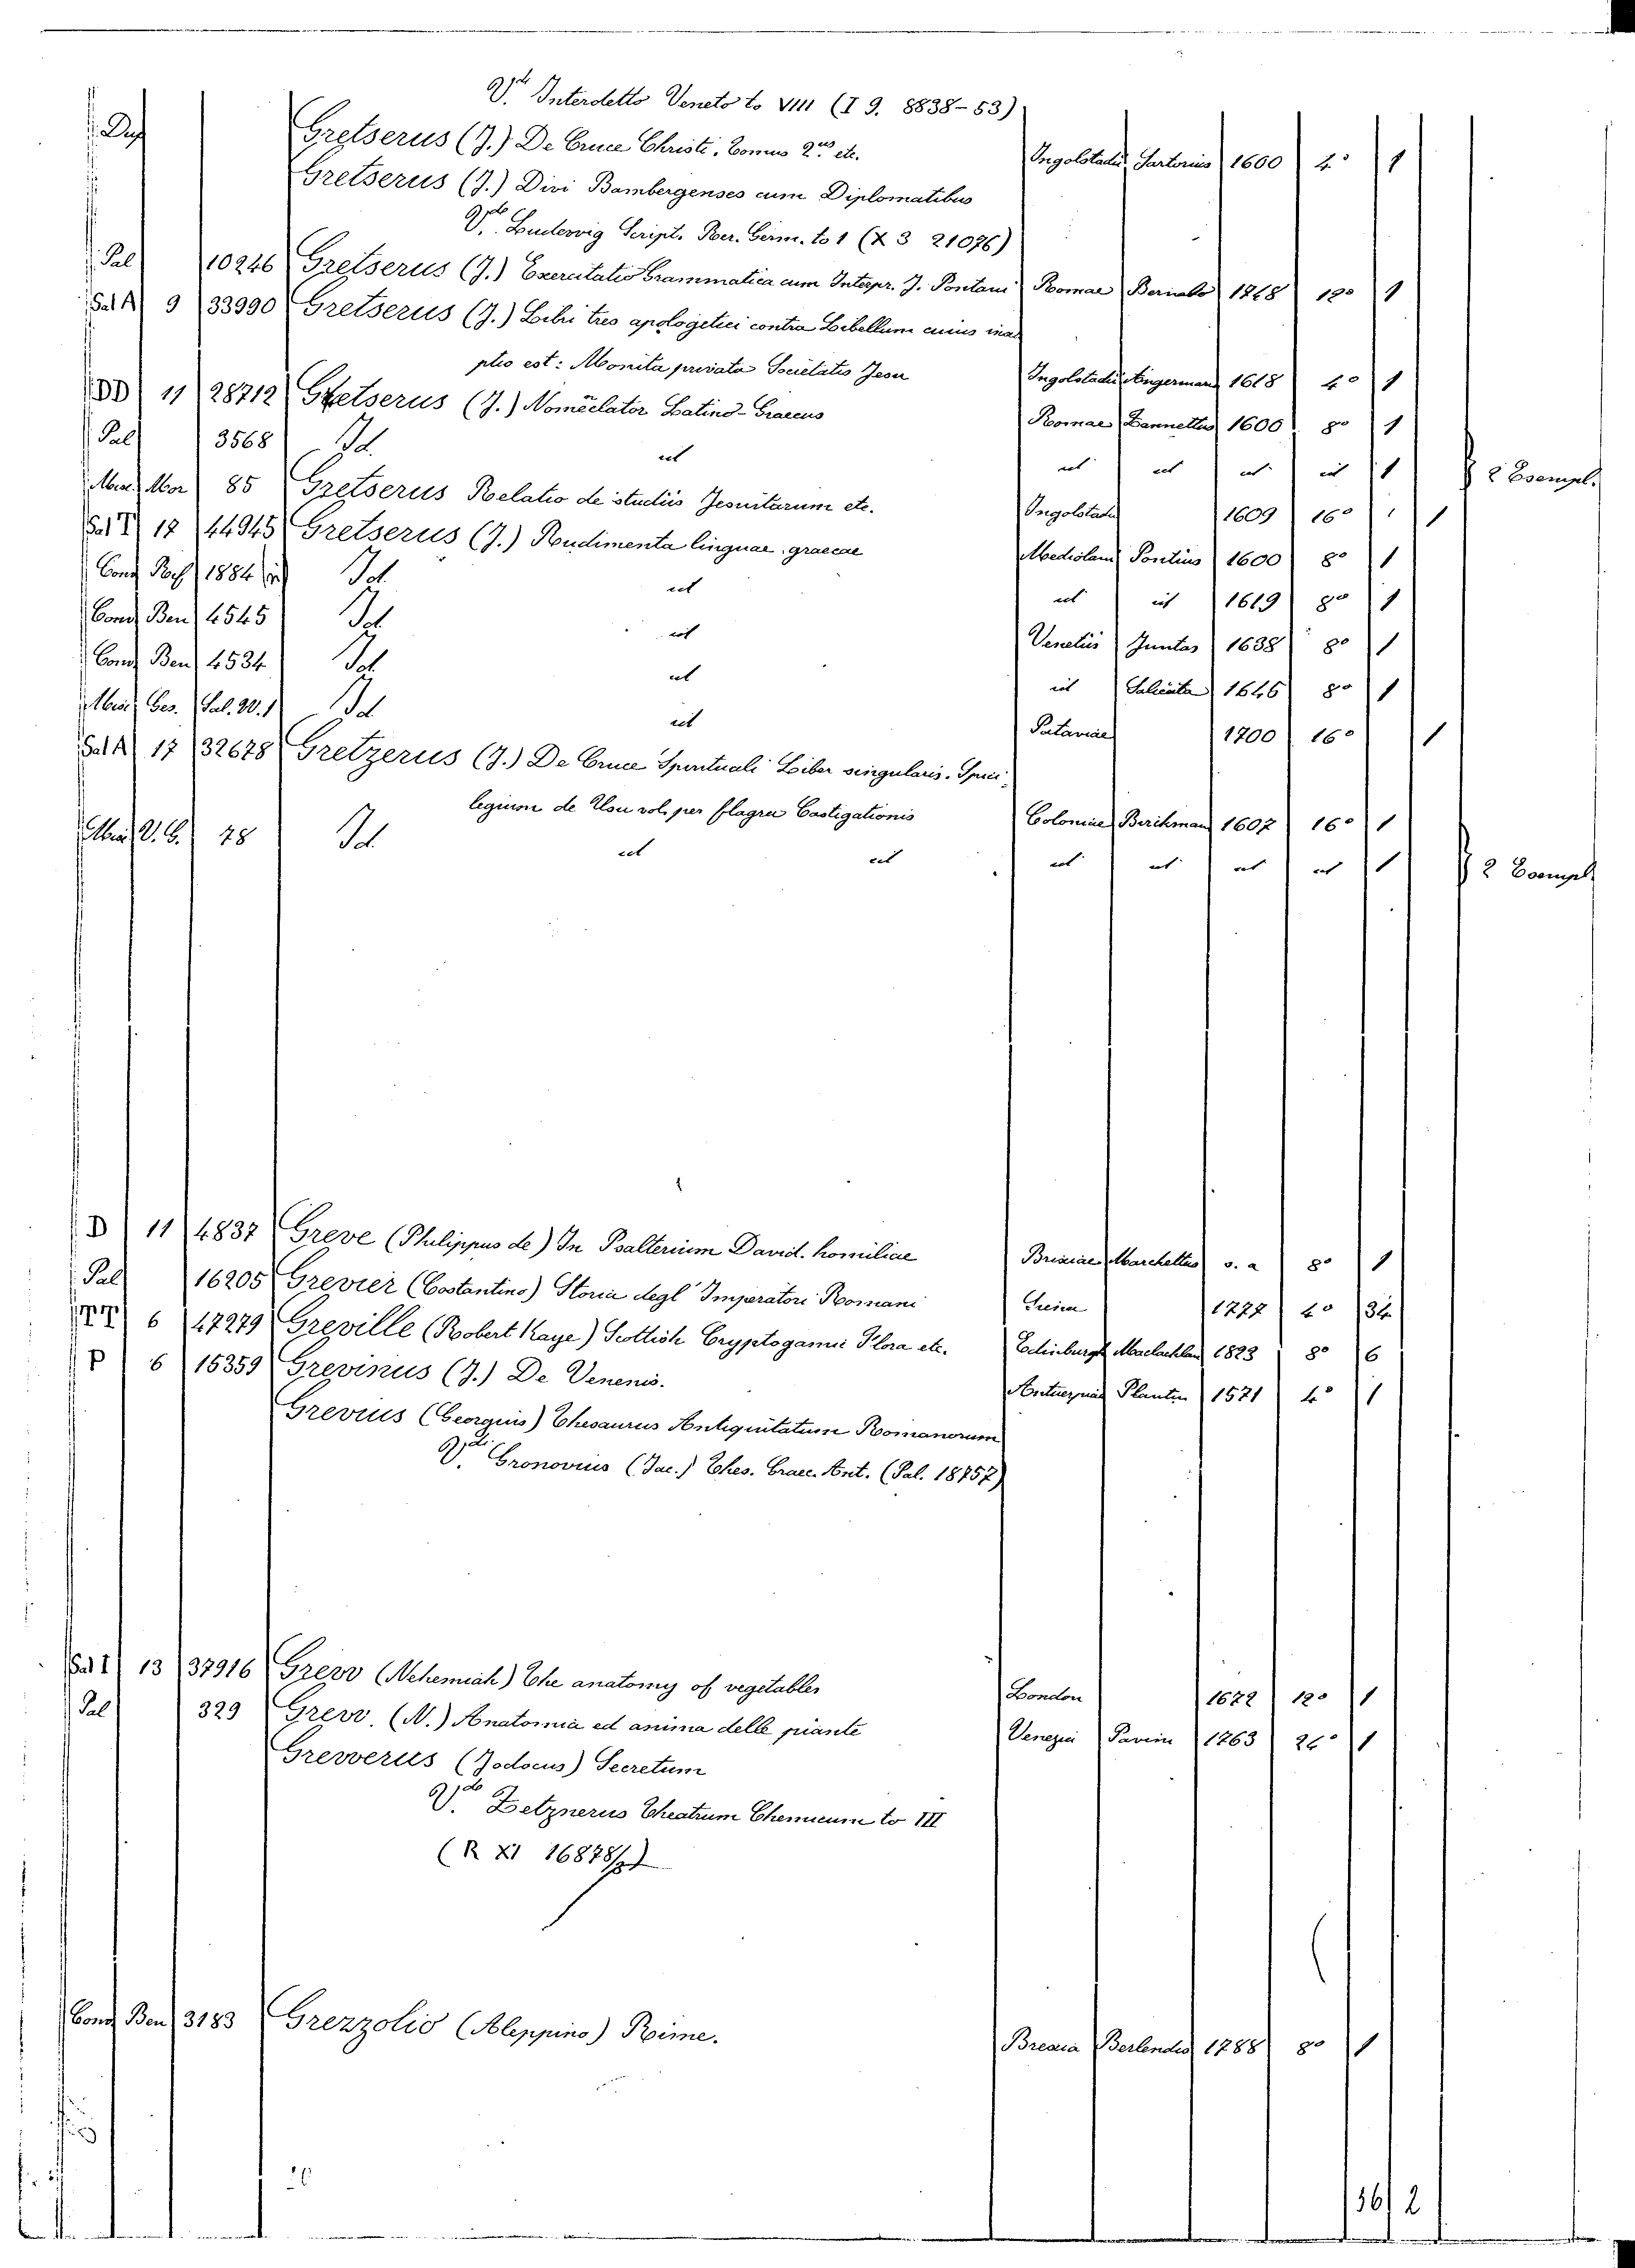 V.di Interdetto Veneto to VIII (I 9. 8838-53)
Dup Gretserus (J.) De Cruce Christi. Tomus 2.us etc. Ingolstadii Sartorius 1600 4° 1
Gretserus (J.) Divi Bambergenses cum Diplomatibus
V.do Ludewig Script. Rer. Germ. to 1 (X 3 21076)
Pal 10246 Gretserus (J.) Exercitatio Grammatica cum Interpr. J. Pontani Romae Bernabo 1748 12° 1
Sal A 9 33990 Gretserus (J.) Libri tres apologetici contra Libellum cuius ins
ptio est: Monita privata Societatis Jesu Ingolstadii Angerman 1618 4° 1
DD 11 28712 Gretserus (J.) Nomēclator Latino-Graecus Romae Zannettus 1600 8° 1
Pal 3568 Id. ut ut ut ut ut 1 2 Esempl.
Misc. Mor 85 Gretserus Relatio de studiis Jesuitarum etc. Ingolstadii 1609 16° 1
Sal T 17 44945 Gretserus (J.) Rudimenta linguae graecae Mediolani Pontius 1600 8° 1
Cons 1884 Id. ut ut ut 1619 8° 1
Cons Ben 4545 Id. ut Venetiis Juntas 1638 8° 1
Cons Ben 4534 Id. ut ut 1646 8° 1
Misc Ges. Sal. W. 1 Id. ut Pataviae 1700 16° 1
Sal A 17 32678 Gretzerus (J.) De Cruce Spirituali Liber singularis. Spici-
legium de Usu vol. per flagra Castigationis Coloniae Birckman 1607 16° 1
78 Id. ut ut ut ut ut ut 1 2 Esempl.
D 11 4837 Greve (Philippus de) In Psalterium David. homiliae Brixiae Marchettus s. a 8° 1
Pal 16205 Grevier (Costantino) Storia degl' Imperatori Romani Siena 1777 4° 34
TT 6 47279 Greville (Robert Kaye) Scottish Cryptogamic Flora etc. Edinburgh Maclachlan 1823 8° 6
P 6 15359 Grevinus (J.) De Venenis. Antuerpiae Plantin 1571 4° 1
Grevius (Georgius) Thesaurus Antiquitatum Romanorum
V.di Gronovius (Jac.) Thes. Graec. Ant. (Pal. 18757)
Sal I 13 37916 Grew (Nehemiah) The anatomy of vegetables London 1672 12° 1
Pal 329 Grew. (N.) Anatomia ed anima delle piante Venezia Pavini 1763 24° 1
Grewerus (Jodocus) Secretum
V.do Zetznerus Theatrum Chemicum to III
(R XI 16878/3)
Cons Ben 3183 Grezzolio (Aleppino) Rime. Brescia Berlendis 1788 8° 1
56 2